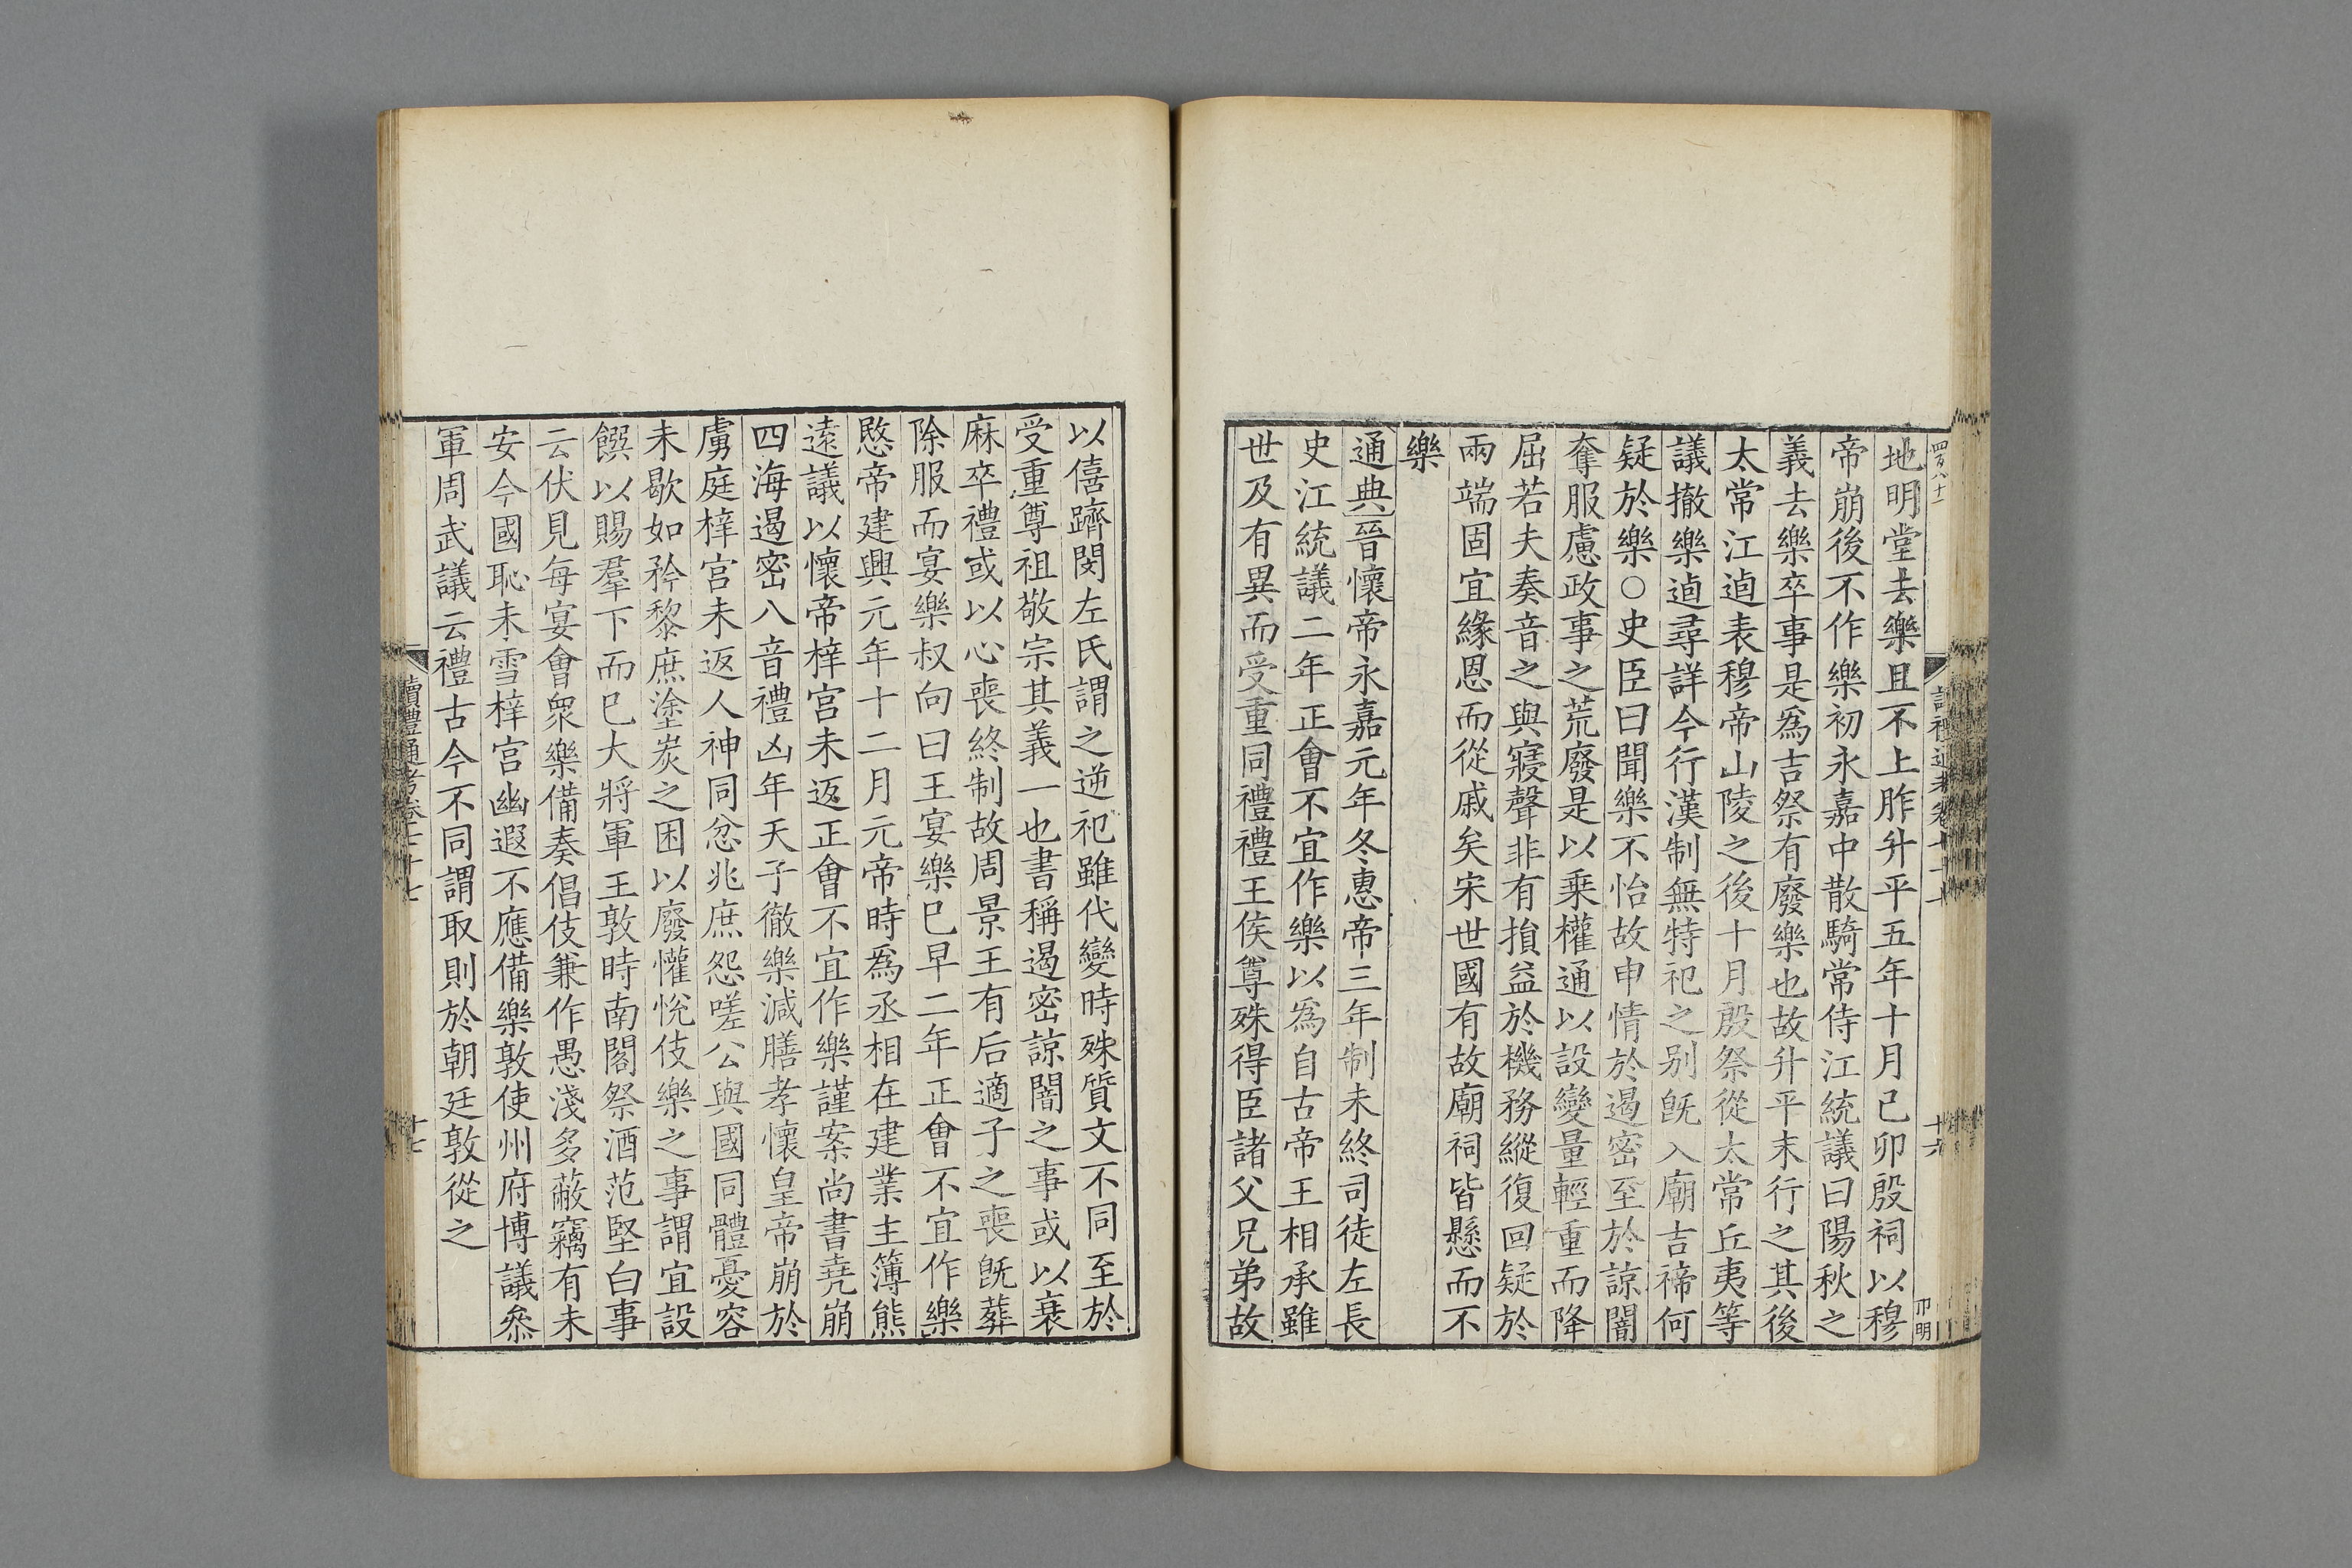 地明堂去樂且不上胙升平五年十月己卯殷祠以穆
帝崩後不作樂初永嘉中散騎常侍江統議曰陽秋之
義去樂卒事是爲吉祭有廢樂也故升平末行之其後
太常江逌表穆帝山陵之後十月殷祭從太常丘夷等
議撤樂逌尋詳今行漢制無特祀之别旣入廟吉禘何
疑於樂○史臣曰聞樂不怡故申情於遏密至於諒闇
奪服慮政事之荒廢是以乗權通以設變量輕重而降
屈若夫奏音之與寢聲非有損益於機務縱復回疑於
兩端固宜緣恩而從戚矣宋世國有故廟祠皆懸而不
樂
通典晉懷帝永嘉元年冬惠帝三年制未終司徒左長
史江統議二年正會不宜作樂以爲自古帝王相承雖
世及有異而受重同禮禮王侯尊殊得臣諸父兄弟故
以僖躋閔左氏謂之逆祀雖代變時殊質文不同至於
受重尊祖敬宗其義一也書稱遏密諒闇之事或以衰
麻卒禮或以心喪終制故周景王有后適子之喪旣葬
除服而宴樂叔向曰王宴樂已早二年正會不宜作樂
愍帝建興元年十二月元帝時爲丞相在建業主簿熊
遠議以懷帝梓宫未返正會不宜作樂謹案尚書堯崩
四海遏密八音禮凶年天子徹樂減膳孝懷皇帝崩於
虜庭梓宫未返人神同忿兆庶怨嗟公與國同體憂容
未歇如矜黎庶塗炭之困以廢懽悅伎樂之事謂宜設
饌以賜羣下而已大將軍王敦時南閣祭酒范堅白事
云伏見每宴會衆樂備奏倡伎兼作愚淺多蔽竊有未
安今國恥未雪梓宫幽遐不應備樂敦使州府博議叅
軍周武議云禮古今不同謂取則於朝廷敦從之
讀禮通考卷七十七
十七
四百八十一
十六
卩明